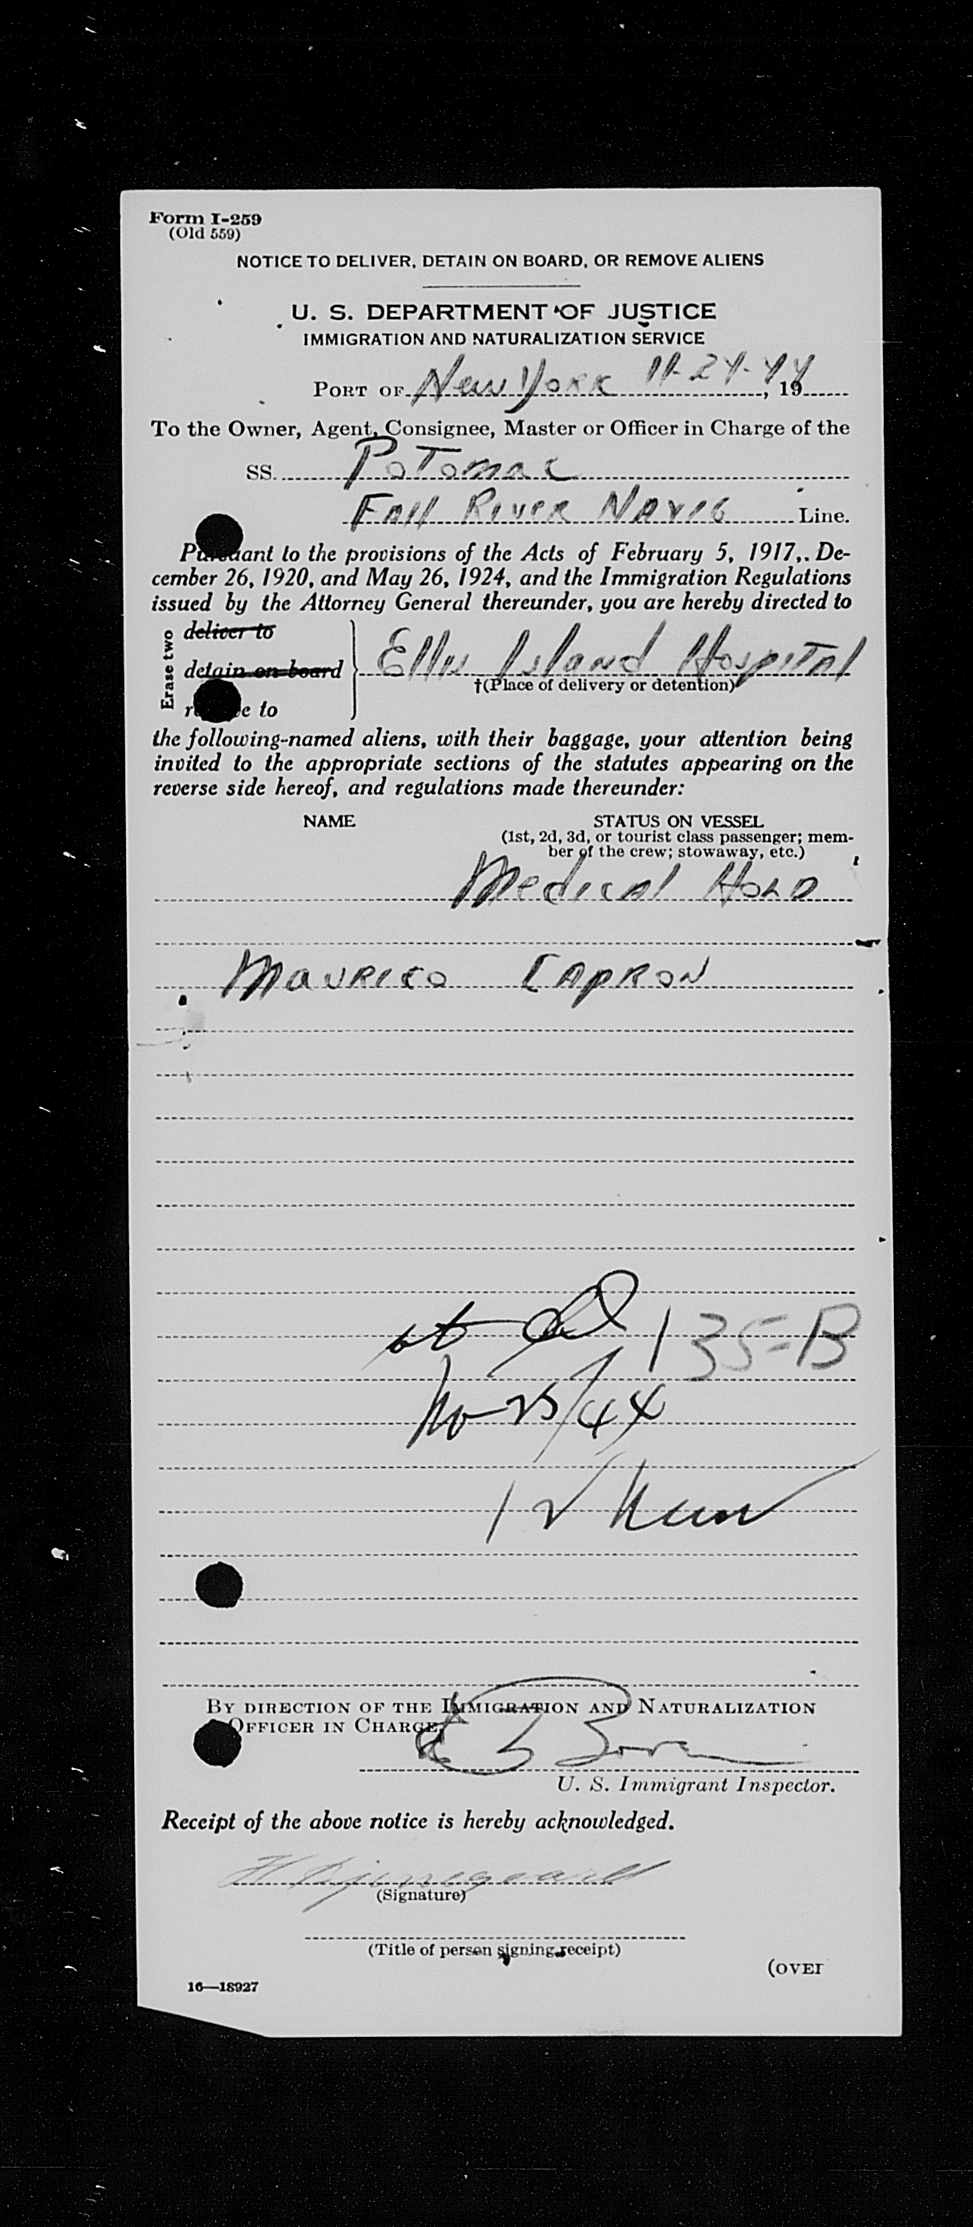 Form I-259
(Old 559)
NOTICE TO DELIVER, DETAIN ON BOARD, OR REMOVE ALIENS
U. S. DEPARTMENT OF JUSTICE
IMMIGRATION AND NATURALIZATION SERVICE
PORT OF New York 11-24-44, 19
To the Owner, Agent, Consignee, Master or Officer in Charge of the
SS. Potomac
Fall River Navig Line.
Pursuant to the provisions of the Acts of February 5, 1917, De-
cember 26, 1920, and May 26, 1924, and the Immigration Regulations
issued by the Attorney General thereunder, you are hereby directed to
Erase two
deliver to
detain on board
re e to
Ellis Island Hospital
†(Place of delivery or detention)
the following-named aliens, with their baggage, your attention being
invited to the appropriate sections of the statutes appearing on the
reverse side hereof, and regulations made thereunder:
NAME STATUS ON VESSEL
(1st, 2d, 3d, or tourist class passenger; mem-
ber of the crew; stowaway, etc.)
Medical Hold
Maurico Capron
135-B
No 25/44
12
BY DIRECTION OF THE IMMIGRATION AND NATURALIZATION
OFFICER IN CHARGE,
U. S. Immigrant Inspector.
Receipt of the above notice is hereby acknowledged.
(Signature)
(Title of person signing receipt)
(OVER
16—18927